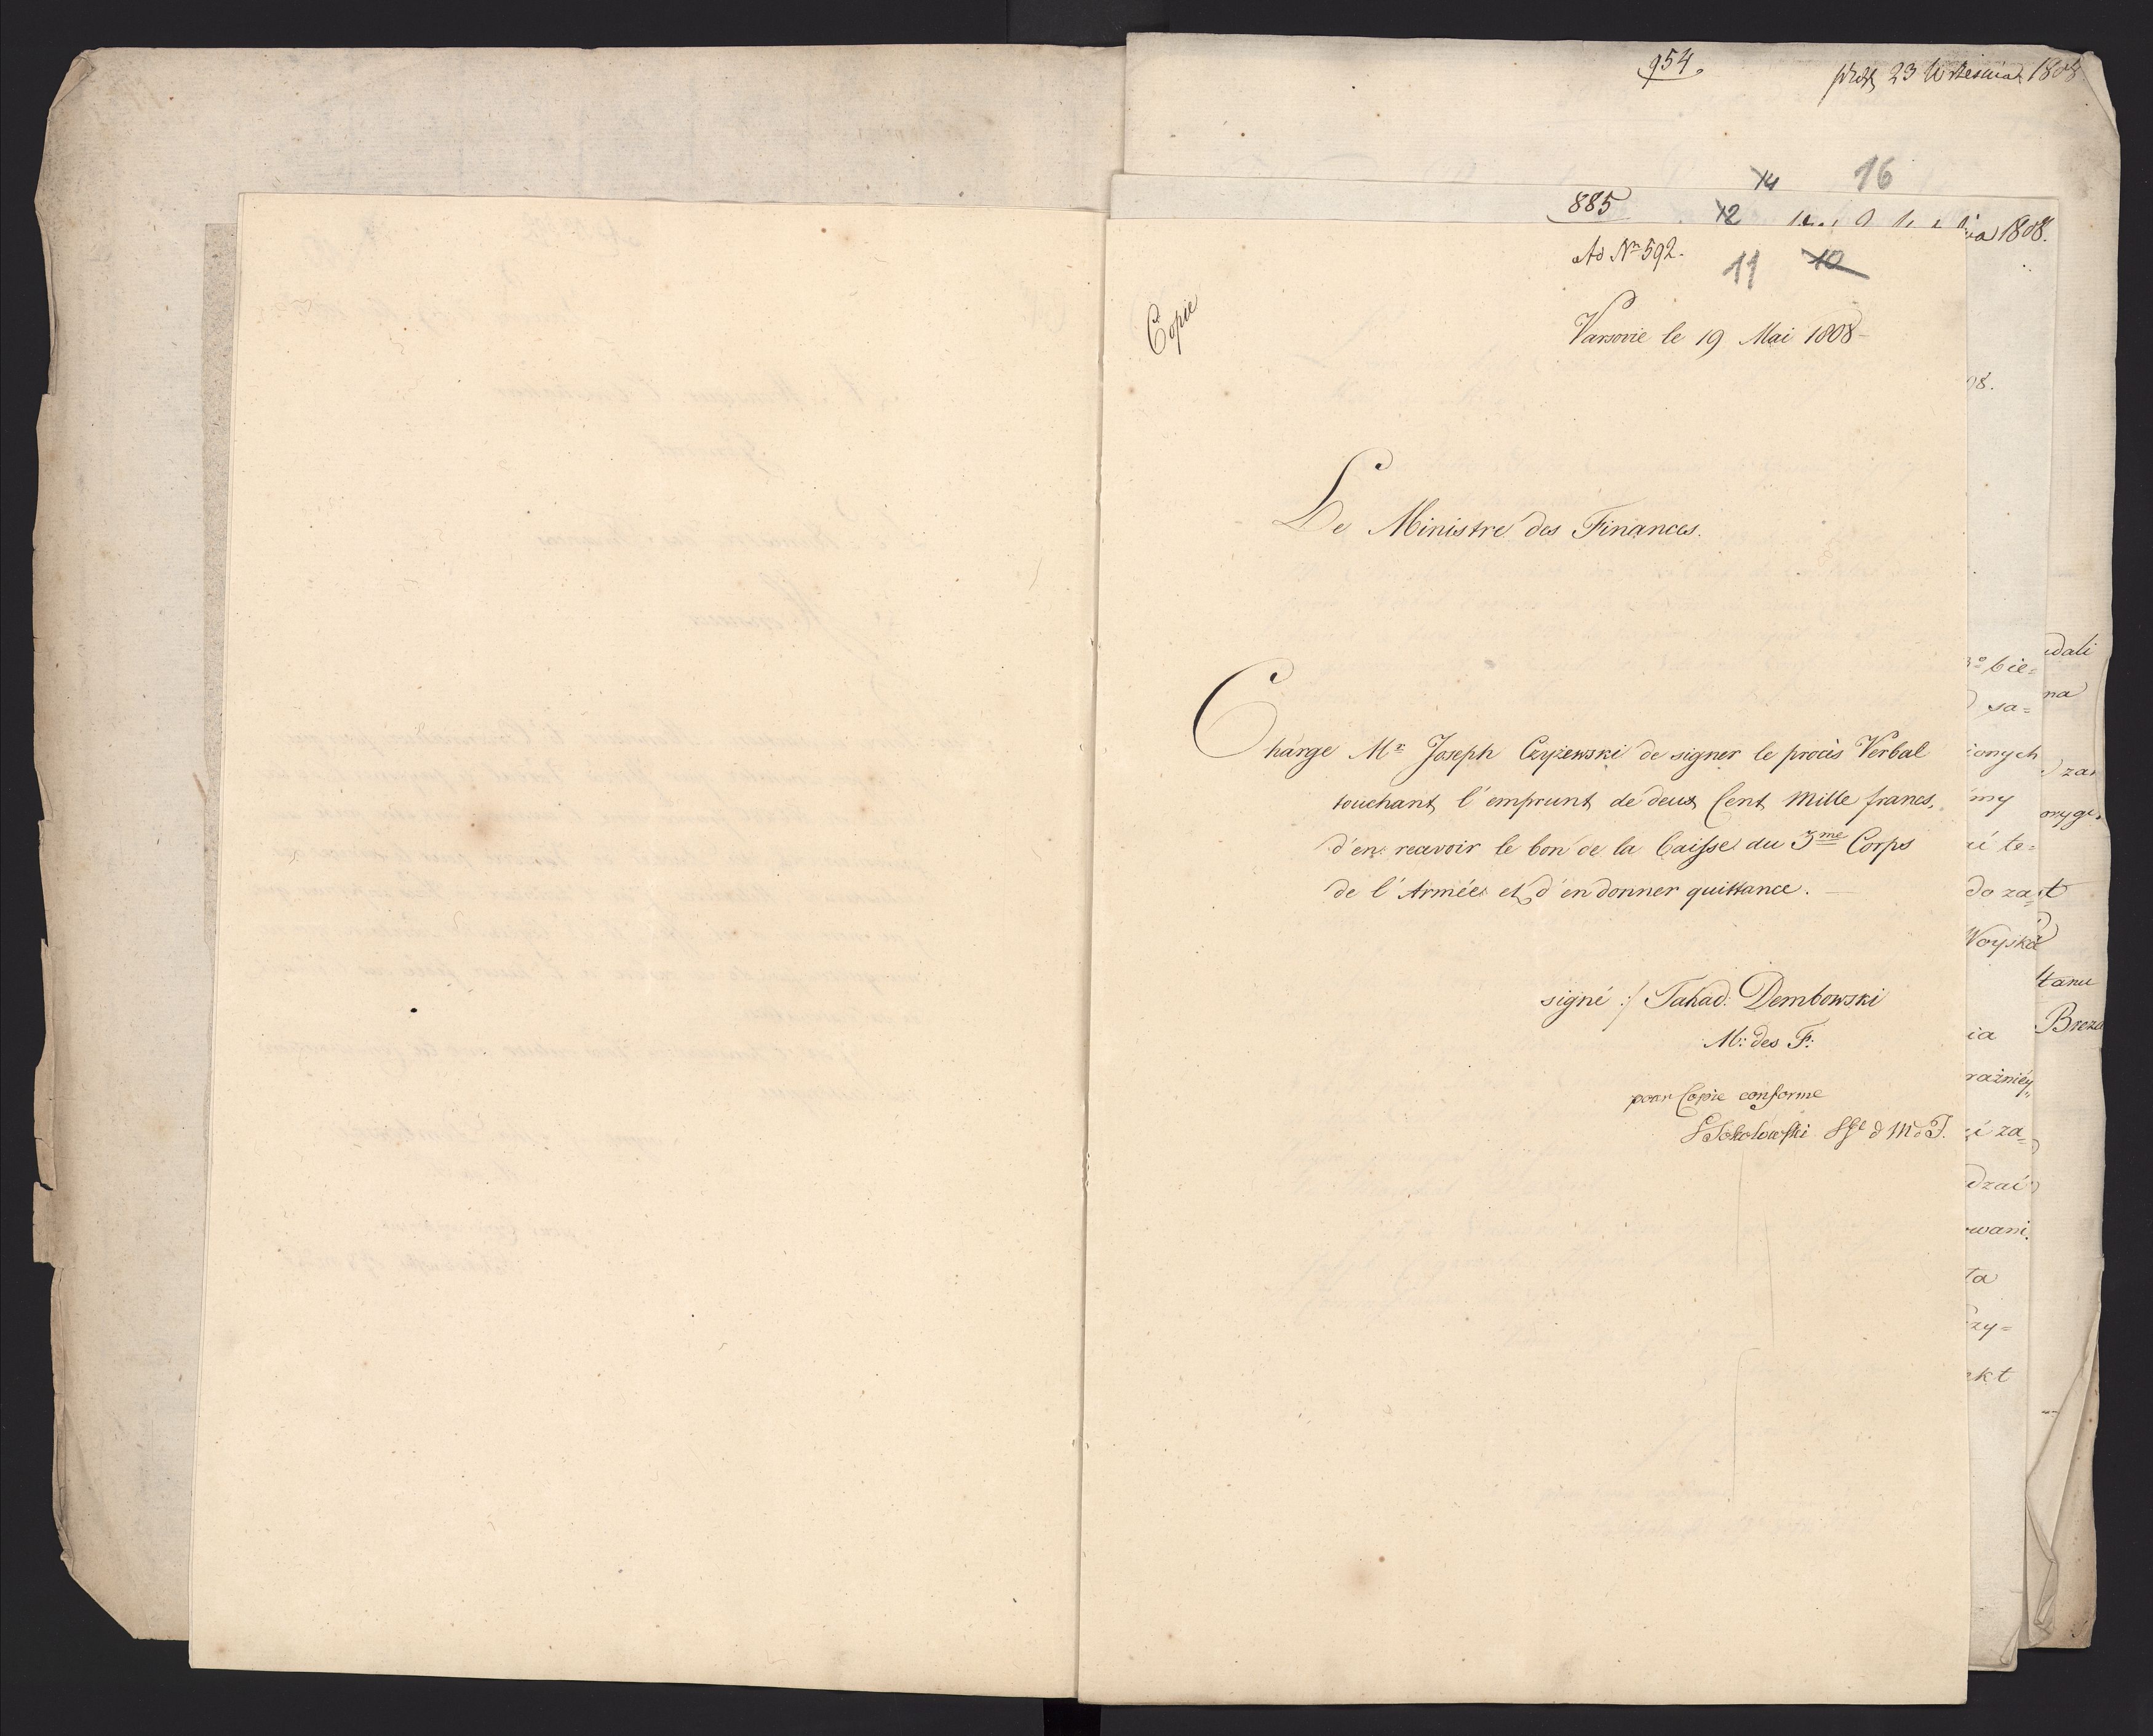 954.
23 Września 1808
14 16
885
12
1808.
Ad Nr. 592.
11 10
Copie
Varsovie le 19 Mai 1808-
Le Ministre des Finances.
Charge Mr. Joseph Czyżewski de signer le procès Verbal
touchant l'emprunt de deux Cent Mille francs,
d'en recevoir le bon de la Caisse du 3me Corps
de l'Armée et d'en donner quittance. —
signé :/ Tahad: Dembowski
M: des F:
pour Copie conforme
Sokolowski
08.
bie=
sa=
ionych
my
le=
do za=
Woyska
ia
raźniéy
za=
dzai
wani.
ta
zy=
ekt
dali
na
zar
t
Stanu
Breza